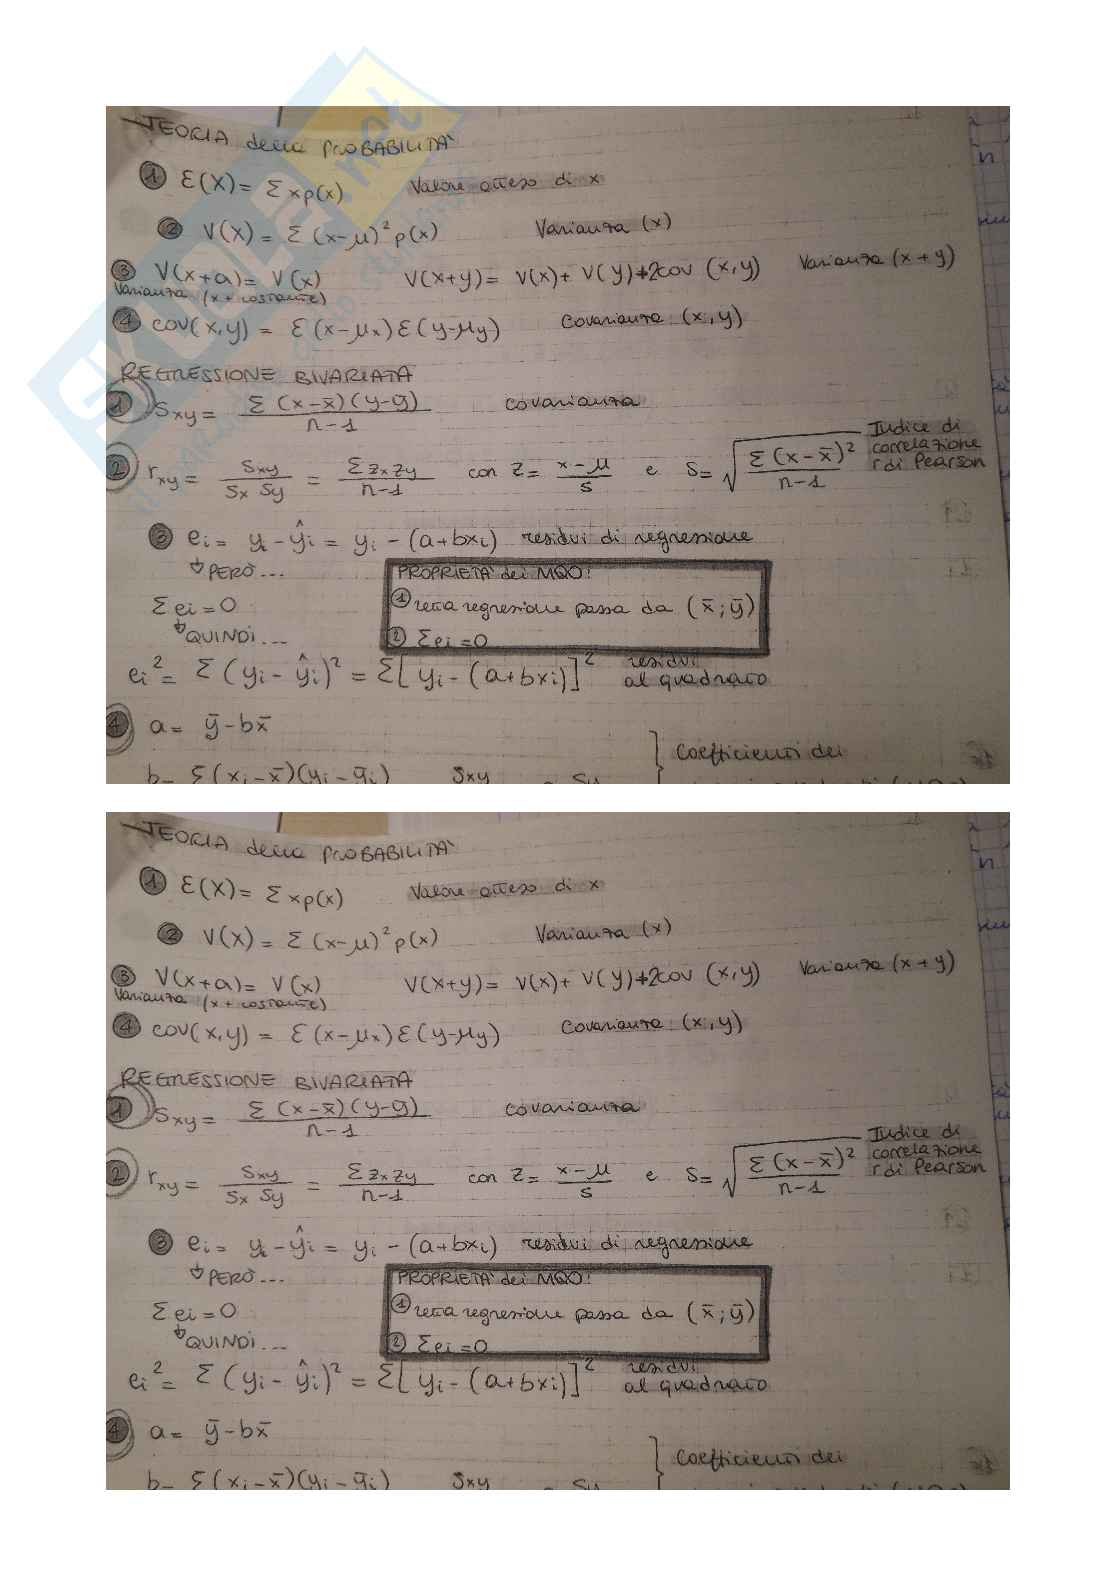 TEORIA della PROBABILITA'
1 E(X) = Σxp(x) Valore atteso di x
2 V(X) = Σ(x-μ)²p(x) Varianza (x)
3 V(x+a) = V(x) V(x+y) = V(x) + V(y) + 2cov (x,y) Varianza (x+y)
Varianza (x + costante)
4 cov(x,y) = E(x-μx)E(y-μy) Covarianza (x,y)
REGRESSIONE BIVARIATA
1 Sxy = Σ(x-x̄)(y-ȳ) / n-1 covarianza
2 rxy = Sxy / Sx Sy = Σ Zx Zy / n-1 con Z = x-μ / s e S = √ Σ(x-x̄)² / n-1 Indice di correlazione r di Pearson
3 ei = yi - ŷi = yi - (a+bxi) residui di regressione
↓ PERÒ...
PROPRIETA' dei MQO:
1 retta regressione passa da (x̄;ȳ)
2 Σei = 0
Σei = 0
↓ QUINDI...
ei² = Σ(yi - ŷi)² = Σ[yi - (a+bxi)]² residui al quadrato
4 a = ȳ - bx̄
Coefficienti dei
b = Σ(xi-x̄)(yi-ȳi) Sxy Sy
TEORIA della PROBABILITA'
1 E(X) = Σxp(x) Valore atteso di x
2 V(X) = Σ(x-μ)²p(x) Varianza (x)
3 V(x+a) = V(x) V(x+y) = V(x) + V(y) + 2cov (x,y) Varianza (x+y)
Varianza (x + costante)
4 cov(x,y) = E(x-μx)E(y-μy) Covarianza (x,y)
REGRESSIONE BIVARIATA
1 Sxy = Σ(x-x̄)(y-ȳ) / n-1 covarianza
2 rxy = Sxy / Sx Sy = Σ Zx Zy / n-1 con Z = x-μ / s e S = √ Σ(x-x̄)² / n-1 Indice di correlazione r di Pearson
3 ei = yi - ŷi = yi - (a+bxi) residui di regressione
↓ PERÒ...
PROPRIETA' dei MQO:
1 retta regressione passa da (x̄;ȳ)
2 Σei = 0
Σei = 0
↓ QUINDI...
ei² = Σ(yi - ŷi)² = Σ[yi - (a+bxi)]² residui al quadrato
4 a = ȳ - bx̄
Coefficienti dei
b = Σ(xi-x̄)(yi-ȳi) Sxy Sy